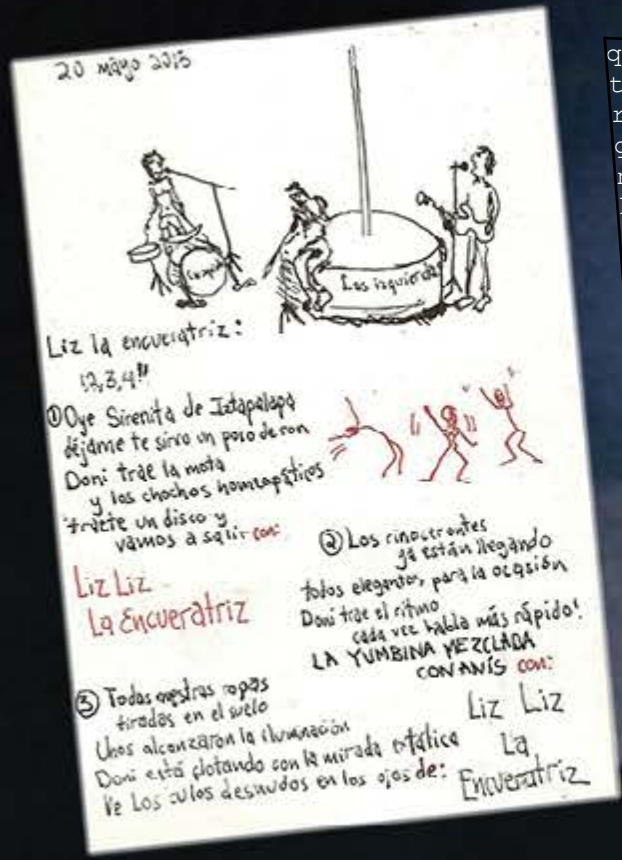 20 mayo 2015
Los izquierda
Liz la encueratriz:
1,2,3,4!!
① Oye Sirenita de Iztapalapa
déjame te sirvo un poco de ron
Doni trae la mota
y los chochos homeopáticos
tráete un disco y
vamos a salir con:
Liz Liz
La Encueratriz
② Los rinocerontes
ya están llegando
todos elegantes, para la ocasión
Doni trae el ritmo
cada vez habla más rápido!
LA YUMBINA MEZCLADA
CON ANÍS con:
Liz Liz
La
Encueratriz
③ Todas nuestras ropas
tiradas en el suelo
Unos alcanzaron la iluminación
Doni está flotando con la mirada extática
Ve Los culos desnudos en los ojos de: